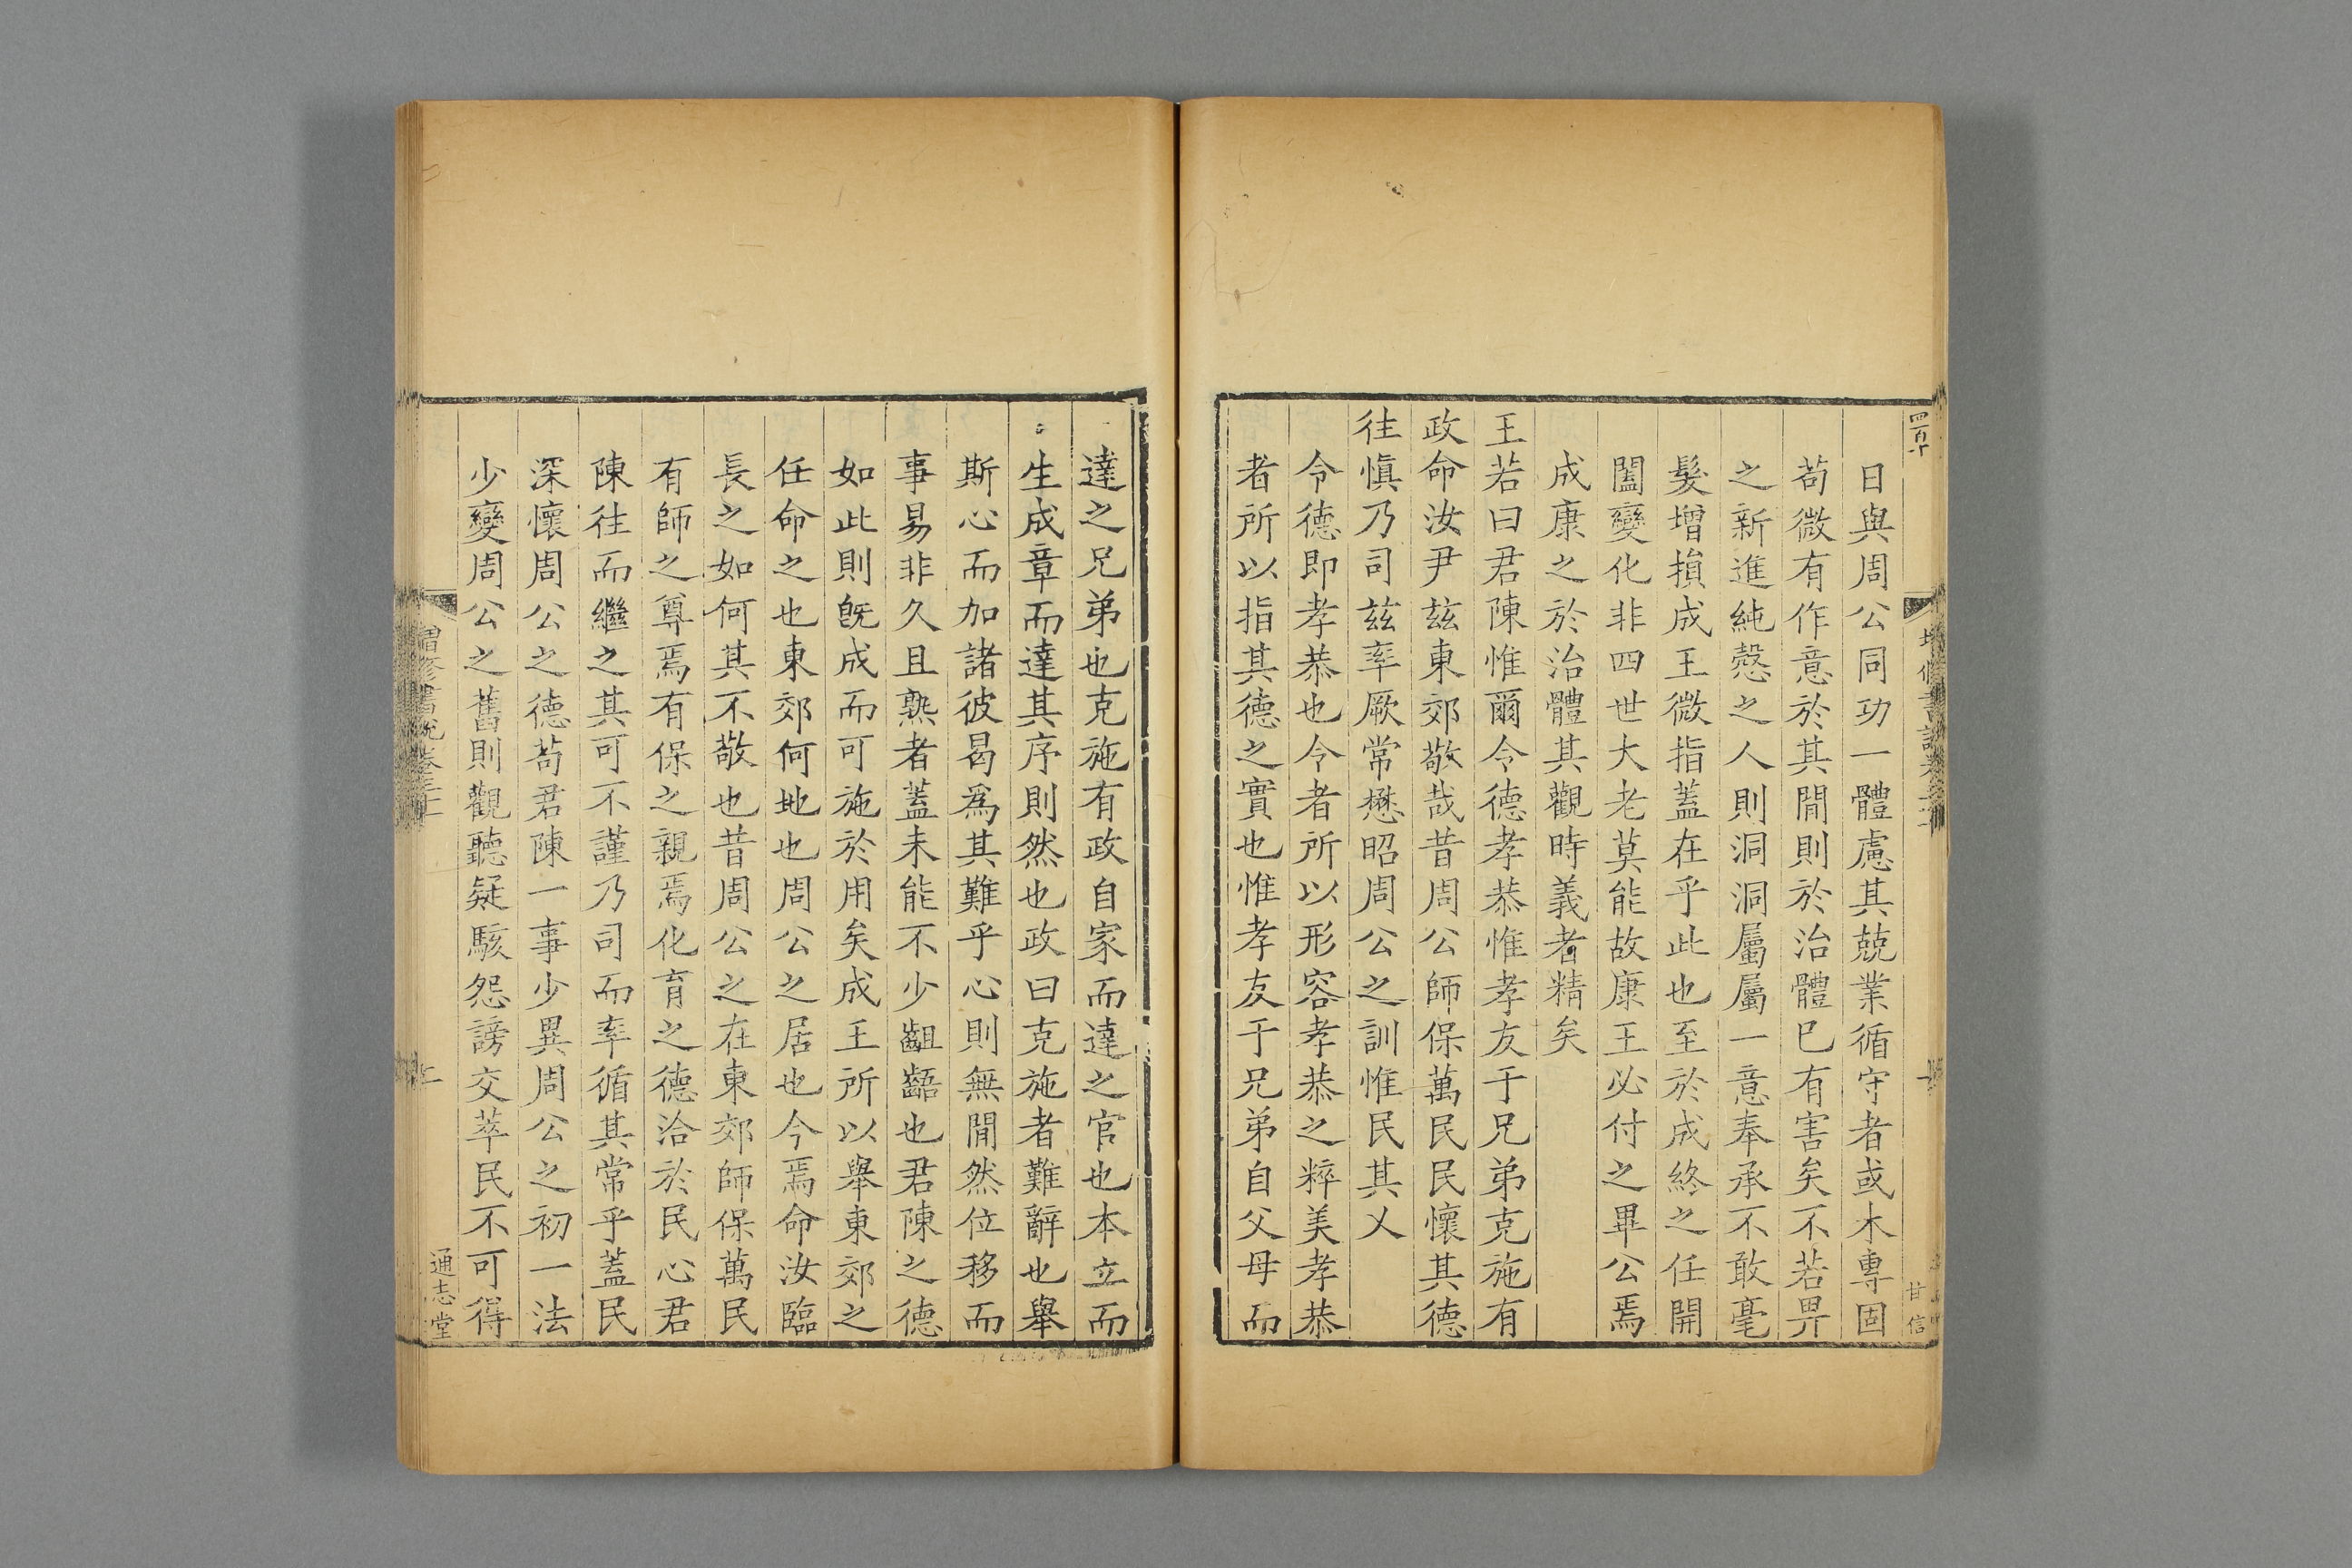 四百十
甘信
日與周公同功一體慮其兢業循守者或木專固
苟微有作意於其間則於治體巳有害矣不若畀
之新進純慤之人則洞洞屬屬一意奉承不敢毫
髮增損成王微指蓋在乎此也至於成終之任開
闔變化非四世大老莫能故康王必付之畢公焉
成康之於治體其觀時義者精矣
王若曰君陳惟爾令德孝恭惟孝友于兄弟克施有
政命汝尹茲東郊敬哉昔周公師保萬民民懷其德
往慎乃司茲率厥常懋昭周公之訓惟民其乂
令德即孝恭也令者所以形容孝恭之粹美孝恭
者所以指其德之實也惟孝友于兄弟自父母而
達之兄弟也克施有政自家而達之官也本立而
生成章而達其序則然也政曰克施者難辭也舉
斯心而加諸彼曷爲其難乎心則無間然位移而
事易非久且熟者蓋未能不少齟齬也君陳之德
如此則旣成而可施於用矣成王所以舉東郊之
任命之也東郊何地也周公之居也今焉命汝臨
長之如何其不敬也昔周公之在東郊師保萬民
有師之尊焉有保之親焉化育之德洽於民心君
陳往而繼之其可不謹乃司而率循其常乎蓋民
深懷周公之德苟君陳一事少異周公之初一法
少變周公之舊則觀聽疑駭怨謗交萃民不可得
增修書說卷三十
通志堂